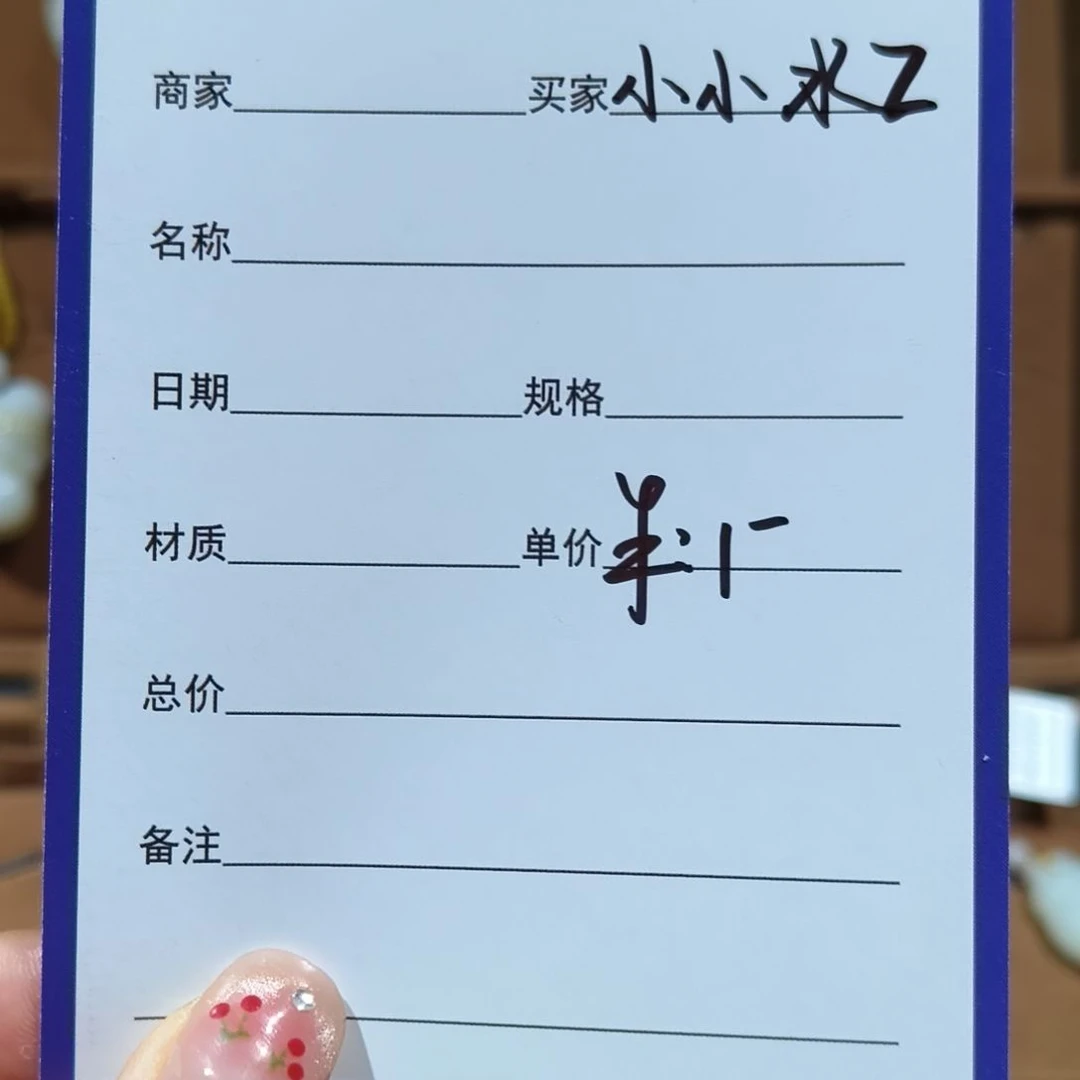 商家 买家小小水Z
名称
日期 规格
材质 单价
总价
备注